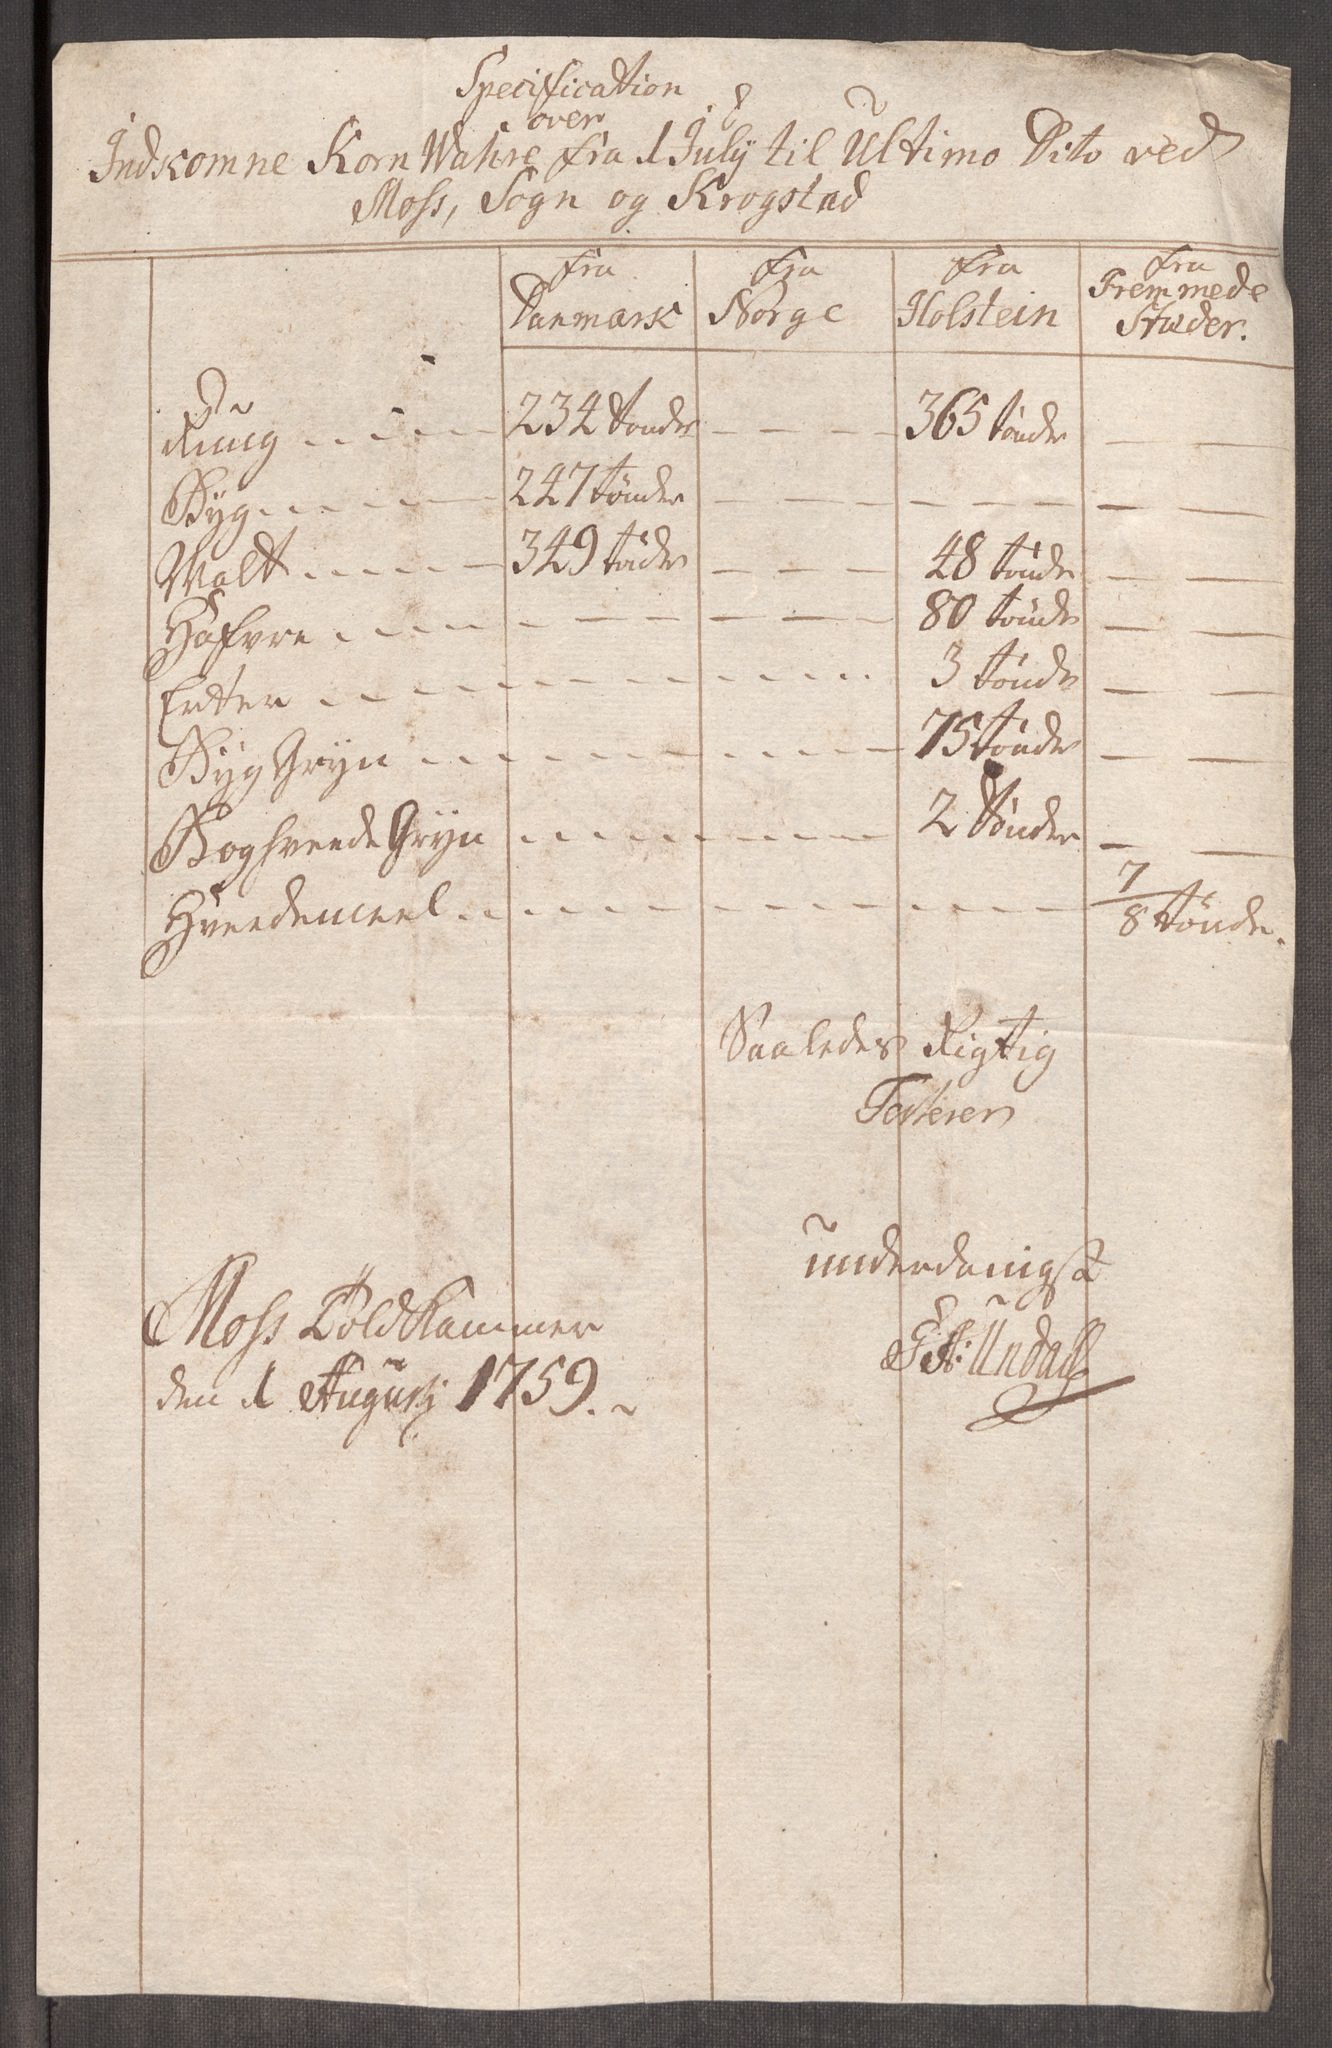 Specification
over
Indkomne Korn Wahre fra 1 July til Ultimo Dito ved
Moss, Sogn og Krogstad
fra Danmark fra Norge fra Holstein fra Fremmede Stæder.
Rüug 234 tonder 365 tönder
Byg 247 tönder
Malt 349 töder 48 tönde
Hafvre 80 tönde
Erter 3 tönde
Byg Gryn 75 tönder
Boghveede Gryn 2 tönder
Hveedemeel 7/8 tönde.
Saaledes Rigtig
Testerer
underdanigst
Moss Toldkammer
den 1 Augustj 1759.